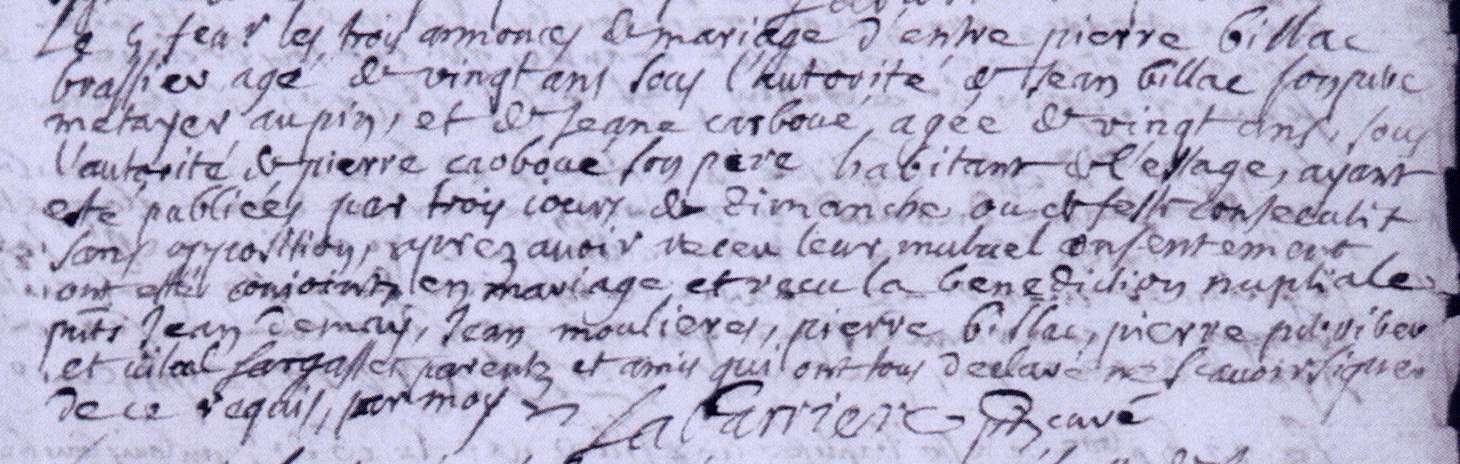 Le 5 feur les trois annonces de mariage d'entre pierre billac
brassier agé de vingt ans sous l'autorité de Jean billac son pere
metayer au pin, et de Jeane carboué, agée de vingt ans, sous
l'autorité de pierre caoboué son pere habitant de l'estage, ayant
esté publiées par trois jours de dimanche ou de feste consecutif
sans opposition, aprez avoir receu leur mutuel consentement
ont esté conjointz en mariage et recu la benediction nuptiale
pnts Jean demous, Jean moulieres, pierre billac, pierre
et vital fargasset parentz et amis qui ont tous declaré ne scavoir signer
de ce requis, par moy
La Carriere curé